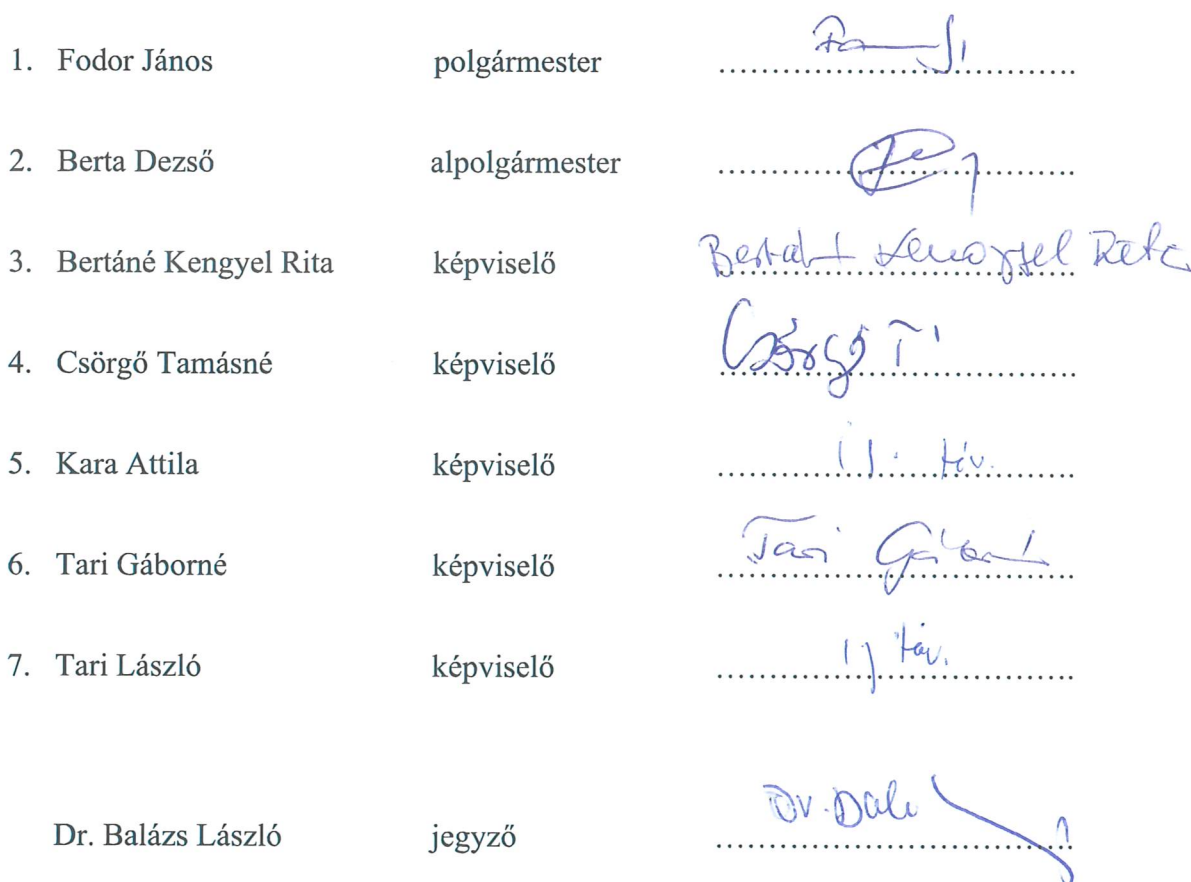 1. Fodor János polgármester ........................................
2. Berta Dezső alpolgármester ........................................
3. Bertáné Kengyel Rita képviselő ........................................
4. Csörgő Tamásné képviselő Csörgő T
5. Kara Attila képviselő ........................................
6. Tari Gáborné képviselő Tari Gáborné
7. Tari László képviselő ........................................
Dr. Balázs László jegyző ........................................